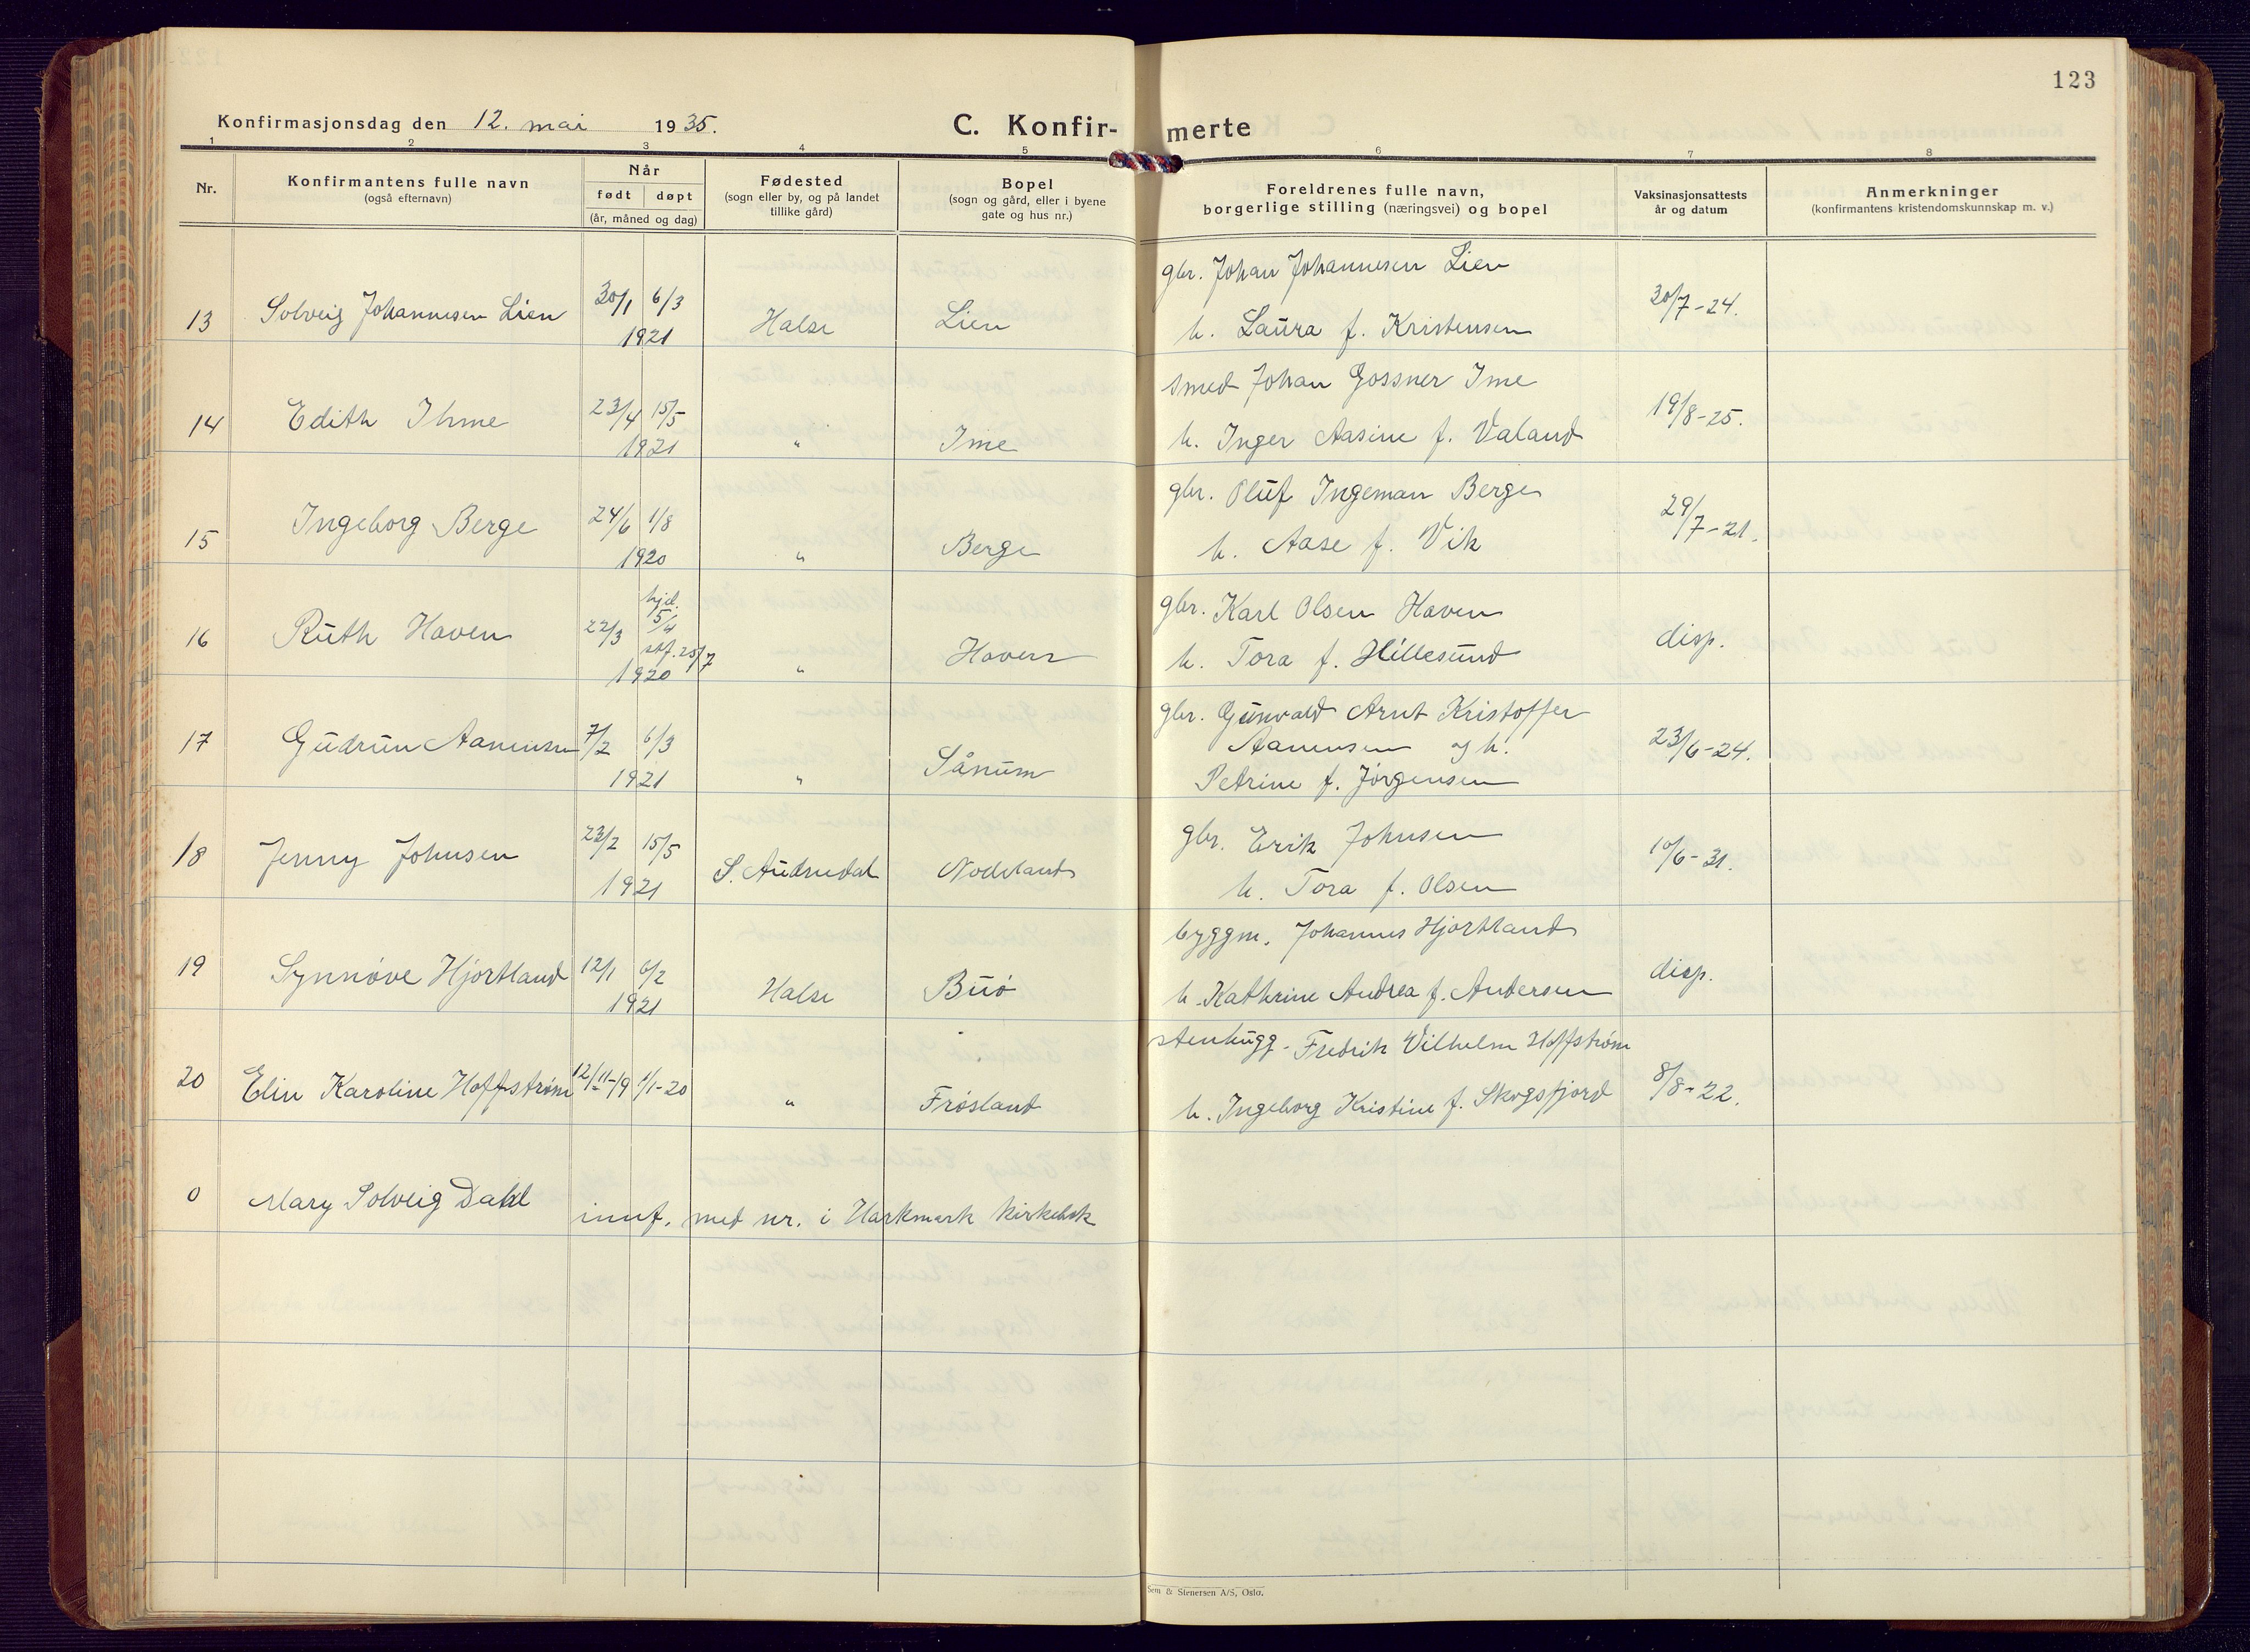 123
Konfirmasjonsdag den 12. mai 1935.
C. Konfir-
merte
1 2 3 4 5 6 7 8
Nr.
Konfirmantens fulle navn
(også efternavn)
Når
født døpt
(år, måned og dag)
Fødested
(sogn eller by, og på landet
tillike gård)
Bopel
(sogn og gård, eller i byene
gate og hus nr.)
Foreldrenes fulle navn,
borgerlige stilling (næringsvei) og bopel
Vaksinasjonsattests
år og datum
Anmerkninger
(konfirmantens kristendomskunnskap m. v.)
gbr. Johan Johannesen Lien
13 Solveig Johannesen Lien 30/1 6/3 1921 Halse Lien
h. Laura f. Kristensen
30/7-24.
smed Johan Gossner Ime
14 Edith Ihme 23/4 15/5 1921 " Ime
h. Inger Aasine f. Valand
19/8-25.
gbr. Oluf Ingeman Berge
15 Ingeborg Berge 24/6 1/8 1920 " Berge
h. Aase f. Vik
29/7-21.
gbr. Karl Olsen Haven
16 Ruth Haven 22/3 hjd. 5/4 stf. 25/7 1920 " Haven
h. Tora f. Hillesund
disp.
gbr. Gunvald Arnt Kristoffer
17 Gudrun Aanensen 7/2 6/3 1921 " Sånum
Aanensen og h.
Petrine f. Jørgensen
23/6-24.
gbr. Erik Johnsen
18 Jenny Johnsen 23/2 15/5 1921 S. Audnedal Nodeland
h. Tora f. Olsen
10/6-31.
byggm. Johannes Hjortland
19 Synnøve Hjortland 12/1 6/2 1921 Halse Buø
h. Kathrine Andrea f. Andersen
disp.
stenhugg. Fredrik Vilhelm Hoffstrøm
20 Elin Karoline Hoffstrøm 12/11-19 1/1-20 " Frøsland
h. Ingeborg Kristine f. Skogsfjord
8/8-22.
0 Mary Solveig Dahl innf. med nr. i Harkmark kirkebok
Sem & Stenersen A/S, Oslo.